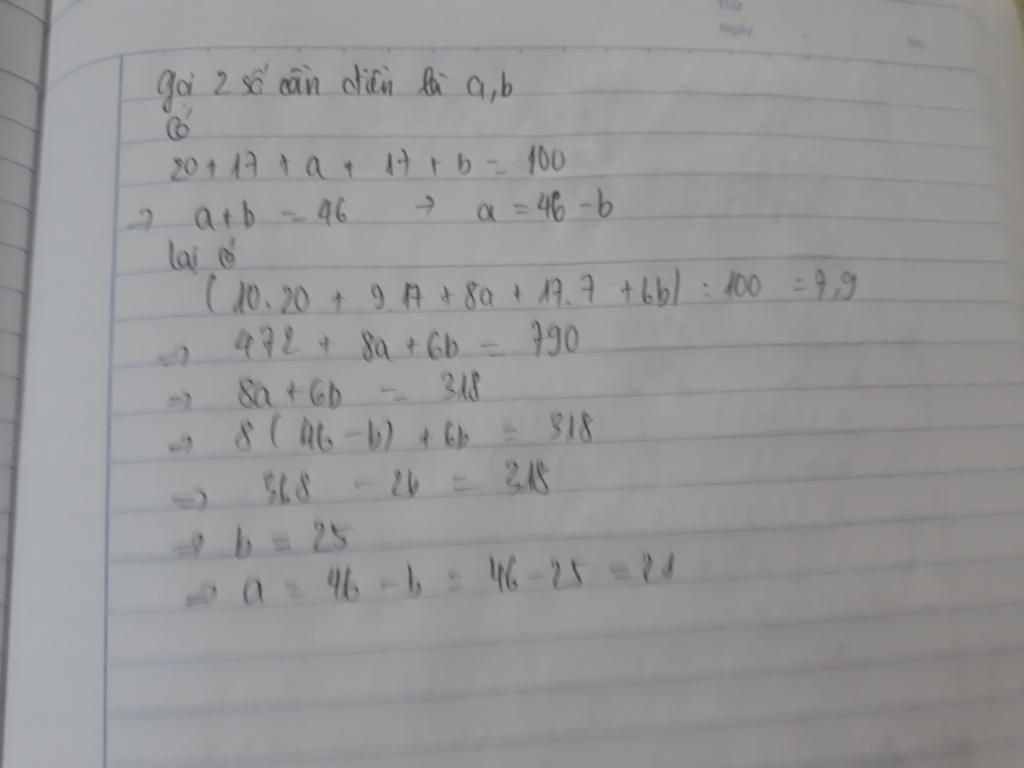 Thứ
Ngày
No.
gọi 2 số cần điền là a,b
có
20 + 17 + a + 17 + b = 100
=> a+b = 46 -> a = 46 - b
lại có
( 10.20 + 9.17 + 8a + 17.7 + 6b) : 100 = 7,9
=> 472 + 8a + 6b = 790
=> 8a + 6b = 318
=> 8 ( 46 - b) + 6b = 318
=> 368 - 2b = 318
=> b = 25
=> a = 46 - b = 46 - 25 = 21